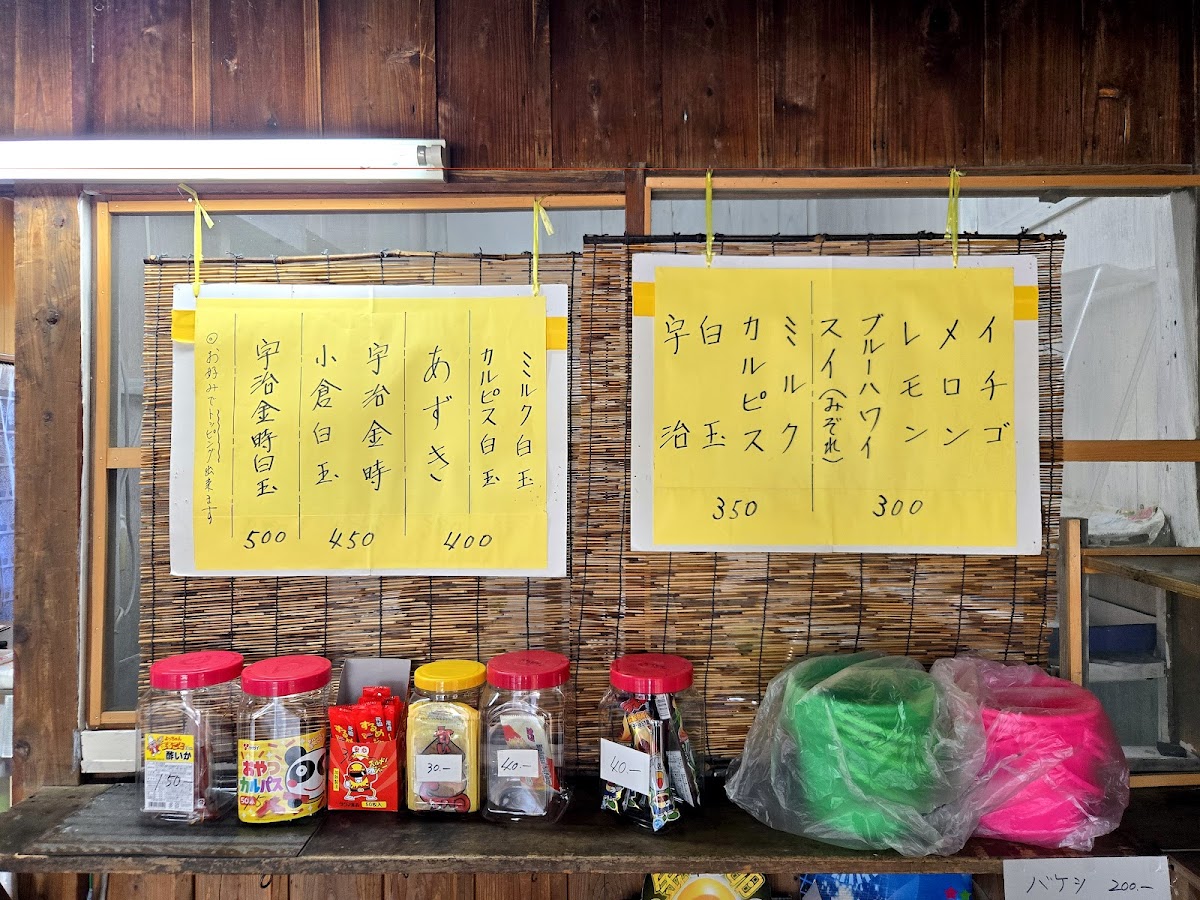 イチゴ
メロン
レモン
ブルーハワイ
スイ(みぞれ)
300
ミルク
カルピス
白玉
宇治
350
ミルク白玉
カルピス白玉
あずき
400
宇治金時
小倉白玉
450
宇治金時白玉
500
お好みでトッピング出来ます
酢いか
150
おやつ
カルパス
50入
するめ
30.-
40.-
40.-
バケシ 200.-